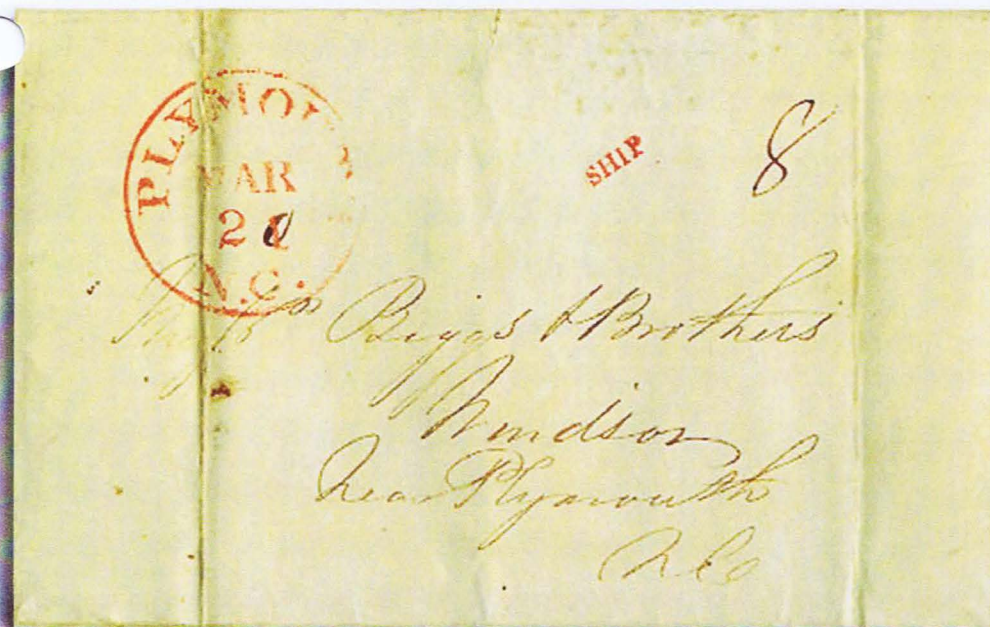 PLYMOU
MAR
2
N.C.
SHIP
8
Biggs & Brothers
Windsor
Near Plymouth
N Co